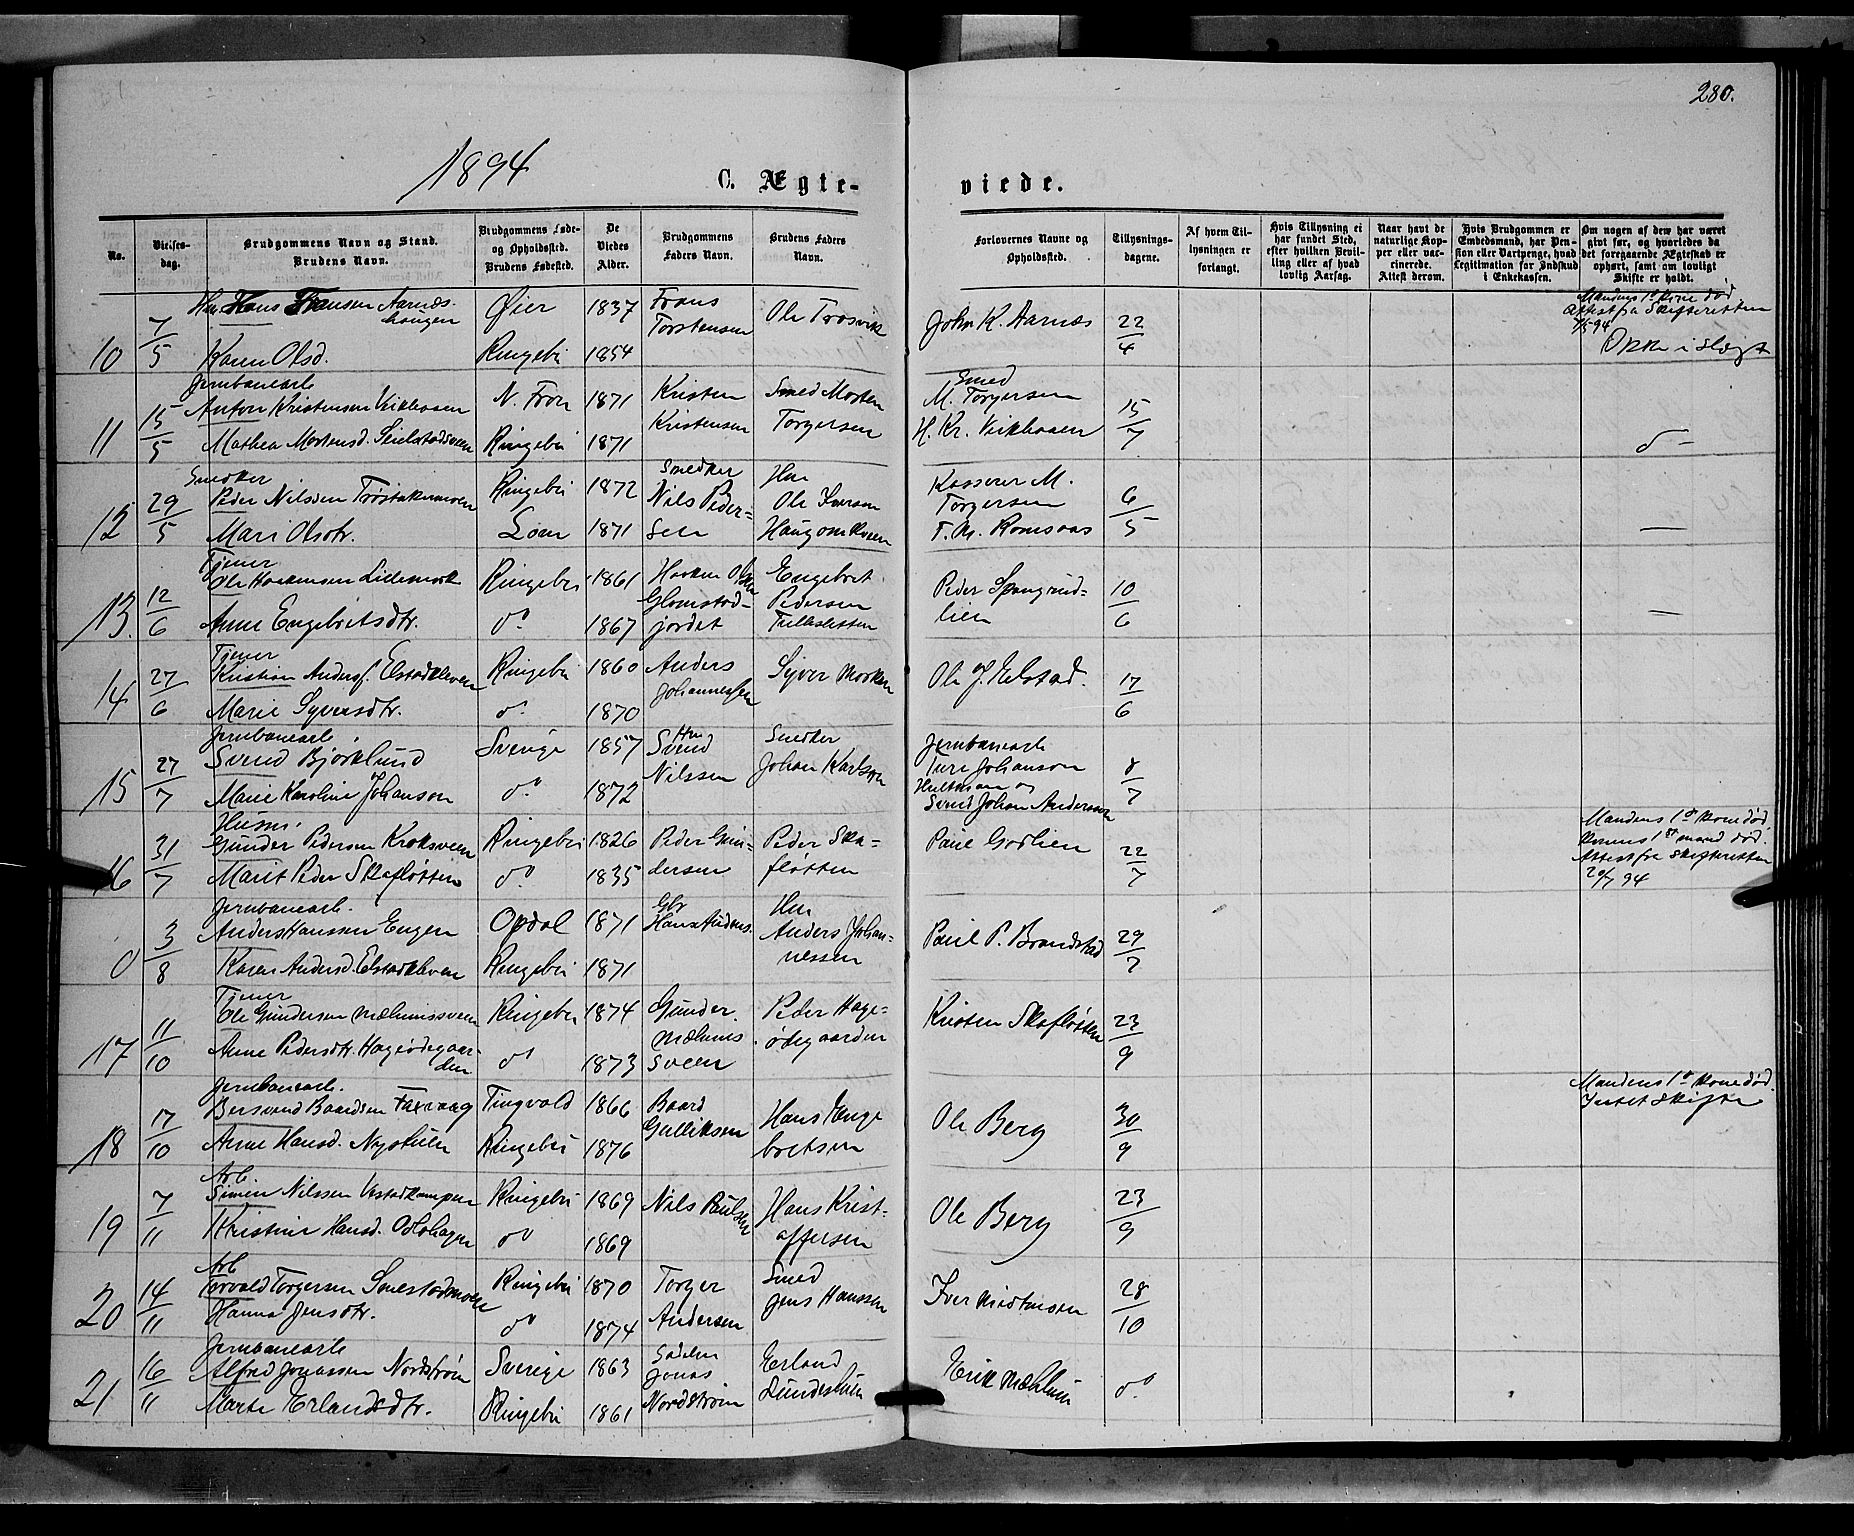 280.
1894
C. Ægte-
viede.
No.
Vielses-
dag.
Brudgommens Navn og Stand.
Brudens Navn.
Brudgommens Føde-
og Opholdssted.
Brudens Fødested.
De
Viedes
Alder.
Brudgommens
Faders Navn.
Brudens Faders
Navn.
Forlovernes Navne og
Opholdssted.
Tillysnings-
dagene.
Af hvem Til-
lysningen er
forlangt.
Hvis Tillysning ei
har fundet Sted,
efter hvilken Bevil-
ling eller af hvad
lovlig Aarsag.
Naar havt de
naturlige Kop-
per eller vac-
cinerede.
Attest derom.
Hvis Brudgommen er
Embedsmand, har Pen-
sion eller Vartpenge, hvad
Legitimation for Indskud
i Enkekassen.
Om nogen af dem har været
gift før, og hvorledes da
det foregaaende Ægteskab er
ophørt, samt om lovligt
Skifte er holdt.
10
7/5
Hans Fransen Aarnæs-
haugen
Karen Olsd.
Øier
Ringebu
1837
1854
Frans
Torstensen
Ole Trosvik
John K. Aarnæs
22/4
Mandens 1ste Kone død
Attest fra Skifteretten
4/5 94
Ikke i Slægt
11
15/5
Jernbanearb.
Anton Kristensen Vikhaven
Mathea Mortensd. Sulstadsveen
N. Fron
Ringebu
1871
1871
Kristen
Kristensen
Smed Morten
Torgersen
Smed
M. Torgersen
H. Kr. Vikhaven
15/7
do
12
29/5
Snedker
Peder Nilssen Trøstakermoen
Mari Olsdtr.
Ringebu
Lom
1872
1871
Snedker
Nils Peder-
sen
Ole Iversen
Haugomkveen
Kasserer M.
Torgersen
T. M. Romsaas
6/5
—
13.
12/6
Tjener
Ole Haakensen Lillemork
Anne Engebretsdtr.
Ringebu
do
1861
1867
Haaken Olsen
Glomstad-
jordet
Engebret
Pedersen
Tullesletten
Peder Spangrud-
lien
10/6
—
14
27/6
Tjener
Kristian Anders. Elstadkleven
Marie Syversdtr.
Ringebu
do
1860
1870
Anders
Johannessen
Syver Morken
Ole J. Elstad.
17/6
15
27/7
Jernbanearb.
Svend Bjørklund
Marie Karoline Johanson
Sverige
do
1857
1872
Svend
Nilssen
Snedker
Johan Karlson
Jernbanearb
Ture Johanson
Hultman og
Svend Johan Anderson
8/7
16
31/7
Husm.
Gunder Pedersen Kroksveen
Marit Peder Skafløtten
Ringebu
do
1826
1835
Peder Gun-
dersen
Peder Ska-
fløtten
Paul Godlien
22/7
Mandens 1ste Kone død,
Konens 1ste mand død.
Attest fra Skifteretten
20/7 94
0
3/8
Jernbanearb.
Anders Hanssen Engen
Karen Andersd. Elstadkleven
Opdal
Ringebu
1871
1871
Gbr
Hans Anders.
Anders Johan-
nessen
Paul P. Brandstad
29/7
17
11/10
Tjener
Ole Gundersen Mælumssveen
Anne Pedersdtr. Hageødegaar-
den
Ringebu
do
1874
1873
Gunder
Mælums
sveen
Peder Hage-
ødegaarden
Kristen Skafløtten
23/9
18
17/10
Jernbanearb.
Bersvend Baardsen Faxvaag
Anne Hansd. Nystuen
Tingvold
Ringebu
1866
1876
Baard
Gulliksen
Hans Enge
bretsen
Ole Berg
30/9
Mandens 1ste Kone død.
Intet Skifte
19
7/11
Arb.
Simen Nilssen Vestadkampen
Kristine Hansd. Oslohagen
Ringebu
do
1869
1869
Nils Paulsen
Hans Krist-
offersen
Ole Berg
23/9
20
14/11
Arb
Torvald Torgersen Smestadmoen
Hanna Jensdtr.
Ringebu
do
1870
1874
Torger
Andersen
Smed
Jens Hanssen
Iver Kristensen
28/10
21
16/11
Jernbanearb
Alfred Jonassen Nordstrøm
Marte Erlandsdtr.
Sverige
Ringebu
1863
1861
Jonas
Nordstrøm
Erland
Lundestuen
Erik Mæhlum
do